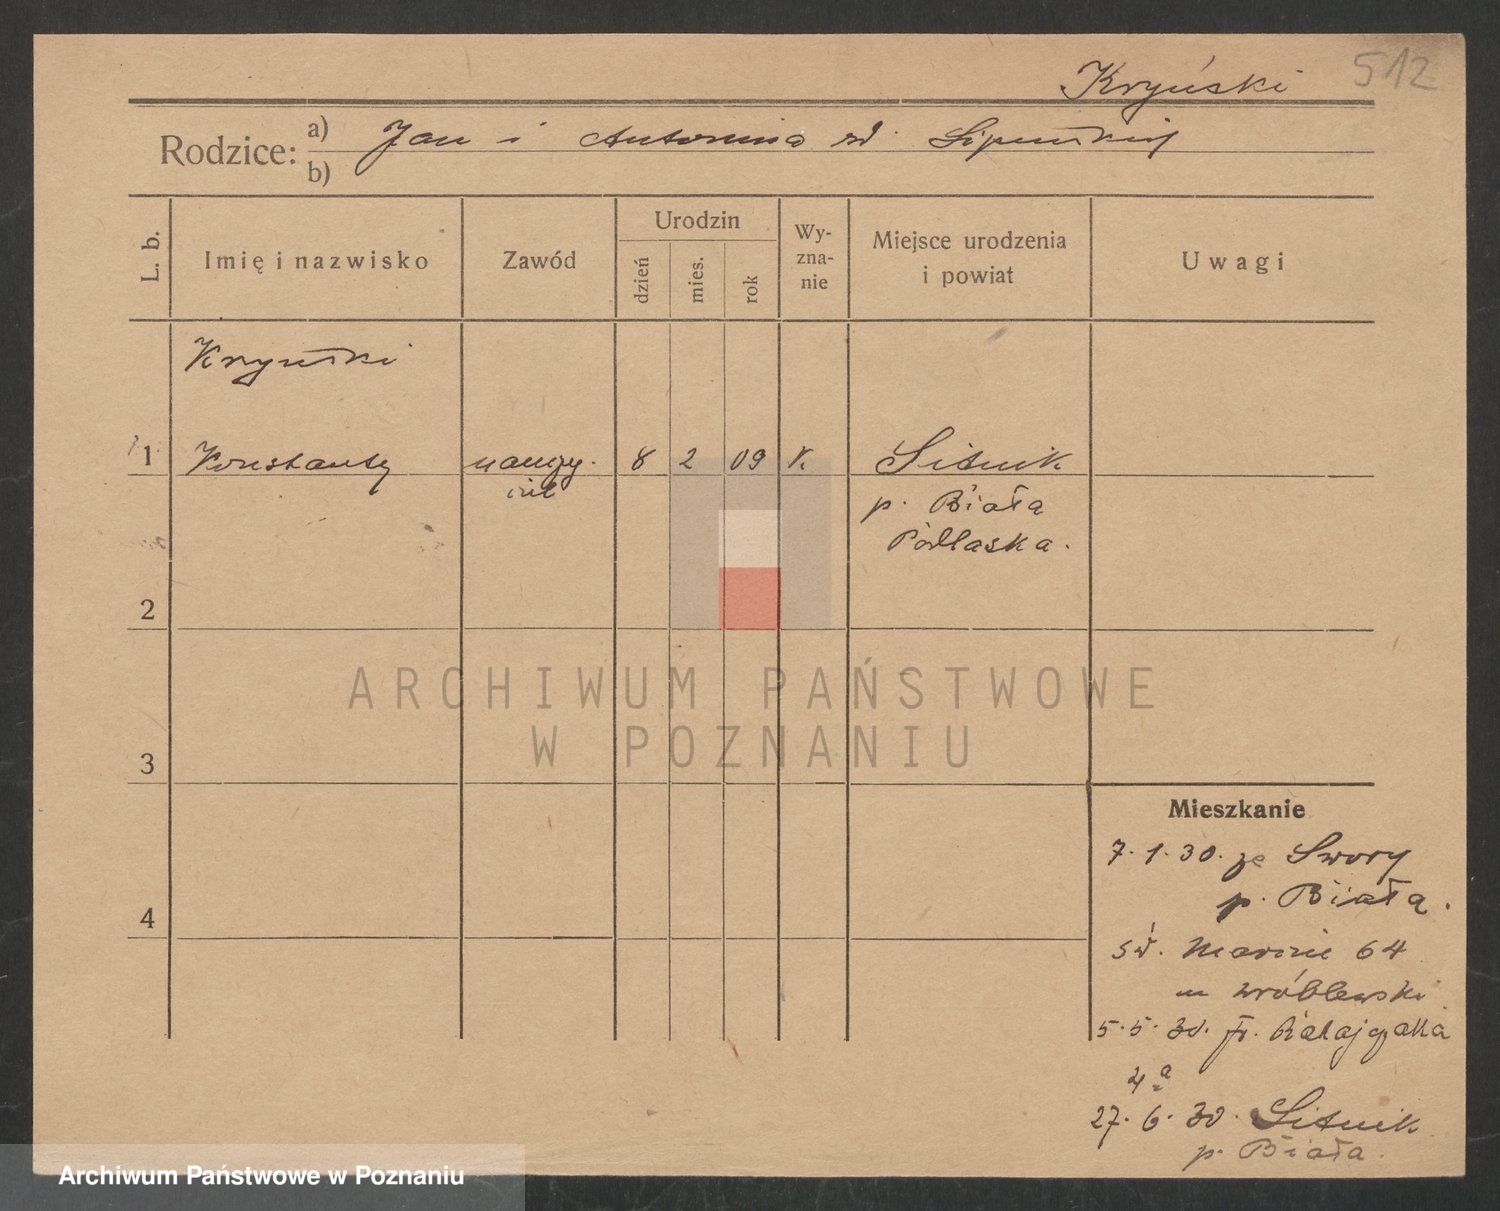 Kryński
512
Rodzice:
a) Jan i Antonina zd. Lipińskiej
b)
L. b.
Imię i nazwisko
Zawód
Urodzin
dzień
mies.
rok
Wy-
zna-
nie
Miejsce urodzenia
i powiat
Uwagi
Kryński
1 Konstanty nauczy- 8 2 09 K. Sitnik
ciel
p. Biała
Podlaska.
2
ARCHIWUM PAŃSTWOWE
W POZNANIU
3
Mieszkanie
7.1.30. ze Swory
p. Biała.
4
św. Marcin 64
m Wróblewski
5.5.30. Fr. Ratajczaka
4a
27.6.30. Sitnik
p. Biała.
Archiwum Państwowe w Poznaniu